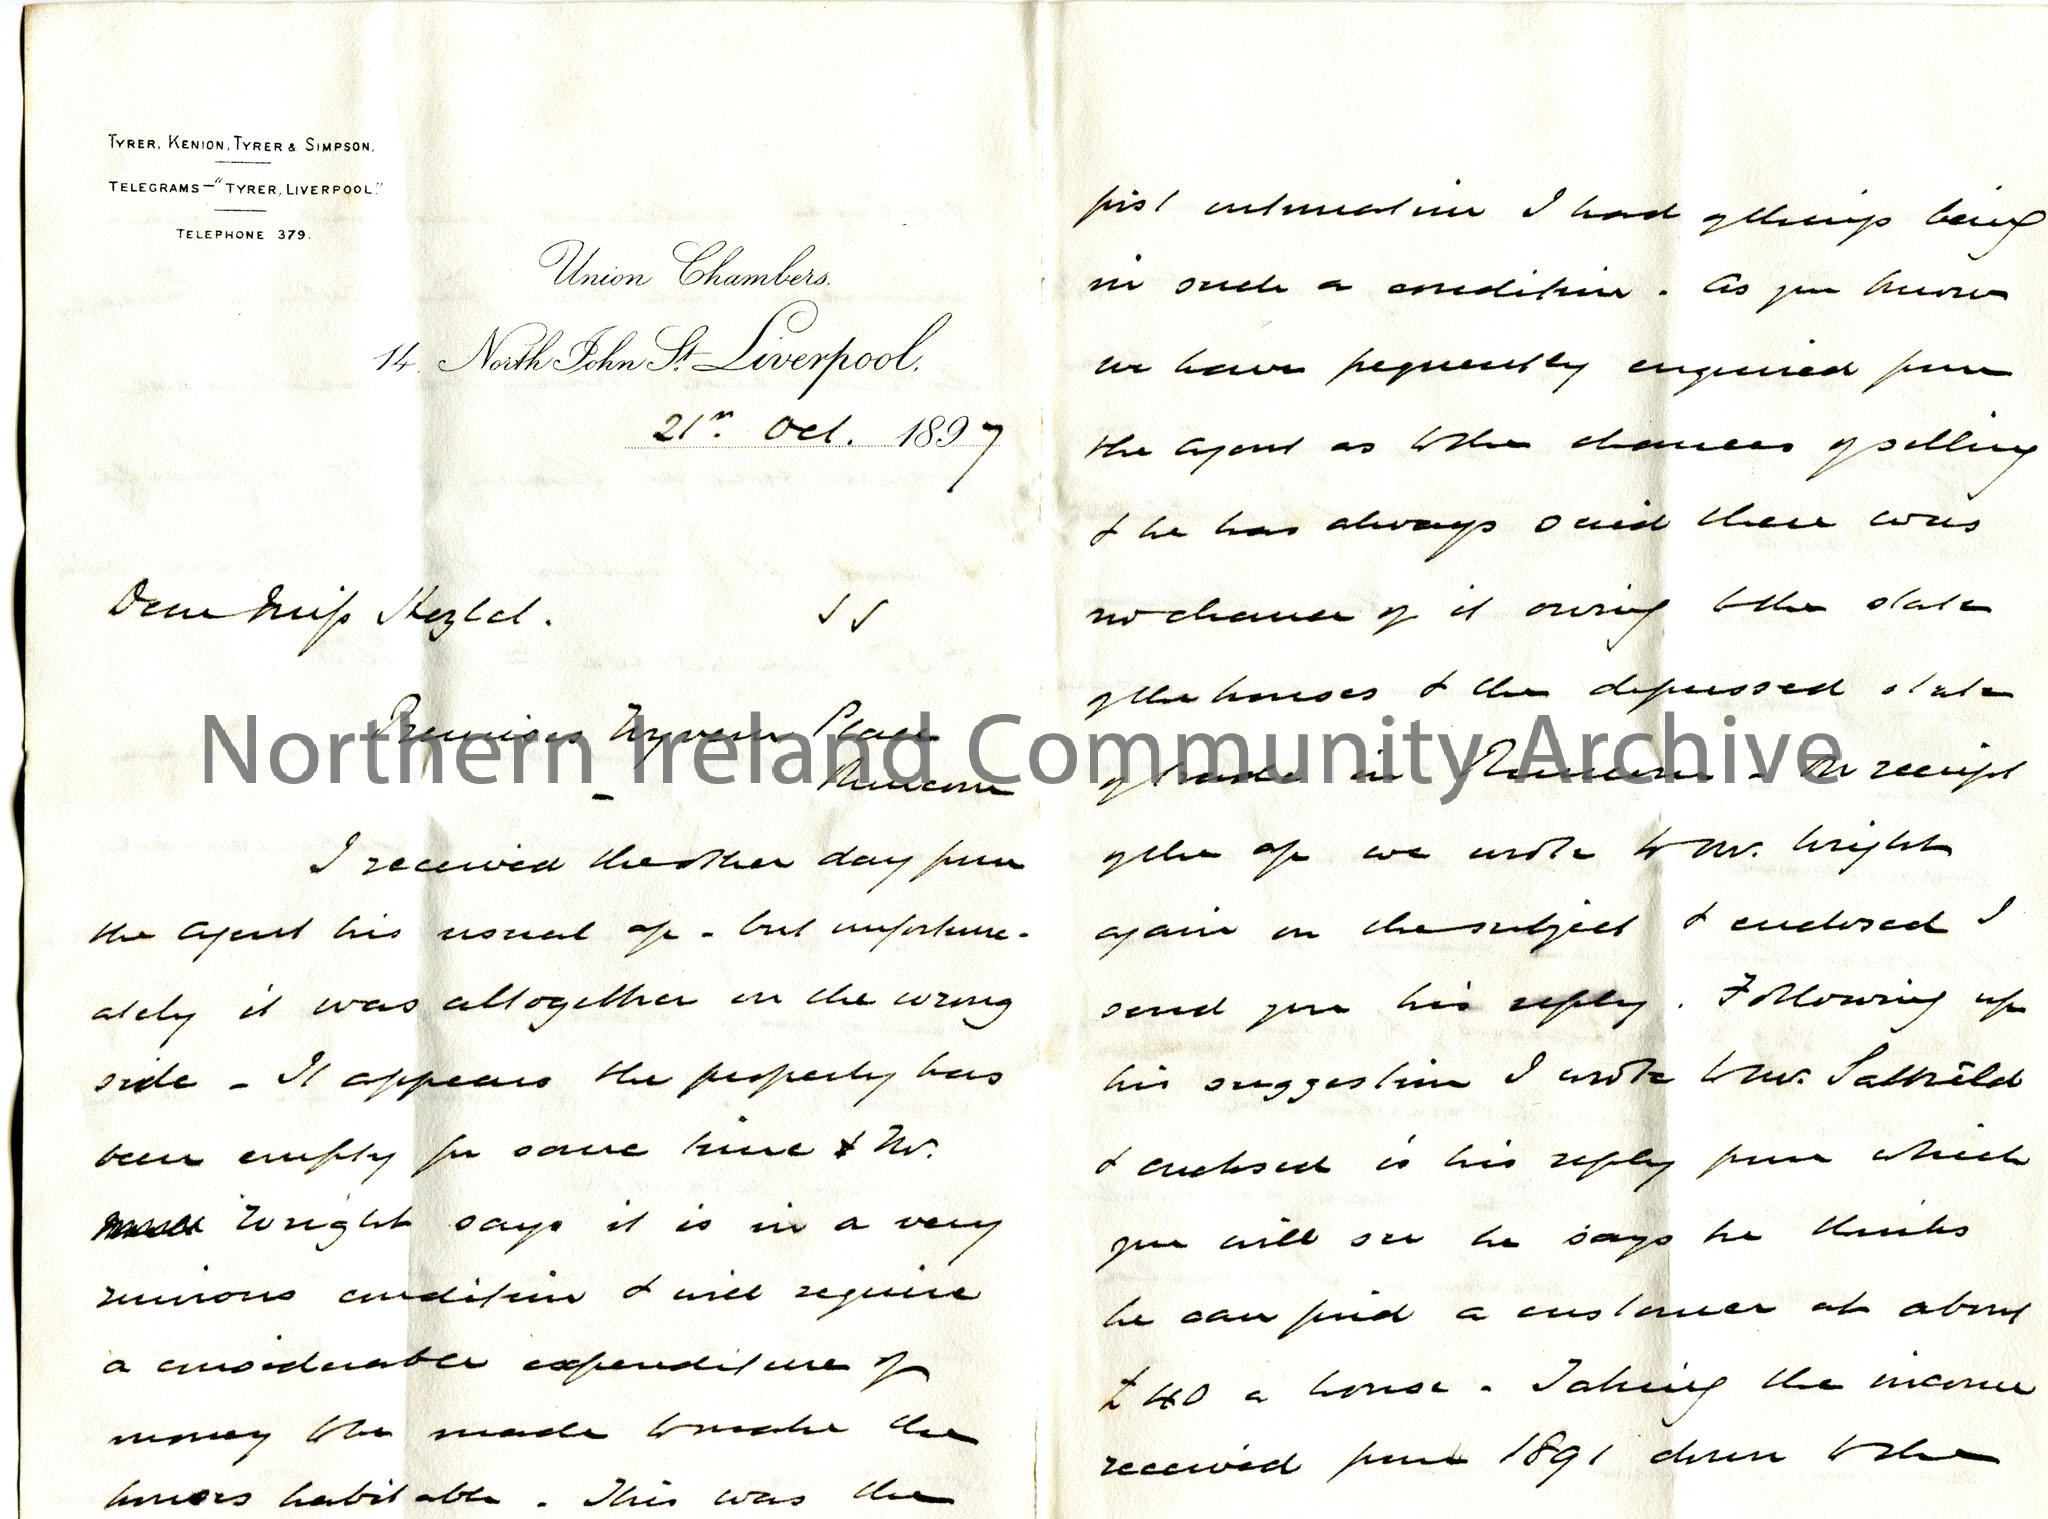 TYRER, KENION, TYRER & SIMPSON.
TELEGRAMS—"TYRER, LIVERPOOL."
TELEPHONE 379.
Union Chambers.
14, North John St. Liverpool.
21st Oct. 1897
Dear Miss
Premises Place
Runcorn
I received the other day from
the agent his usual a/c - but unfortun-
ately it was altogether on the wrong
side - It appears the property has
been empty for some time & Mr.
Wright says it is in a very
ruinous condition & will require
a considerable expenditure of
money to be made to make the
houses habitable. This was the
first intimation I had of things being
in such a condition. As you know
we have frequently enquired from
the agent as to the chances of selling
& he has always said there was
no chance of it owing to the state
of the houses & the depressed state
of trade in Runcorn - On receipt
of the a/c we wrote to Mr. Wright
again on the subject & enclosed I
send you his reply. Following up
his suggestion I wrote to Mr.
& enclosed is his reply from which
you will see he says he thinks
he can find a customer at about
£40 a house - Taking the income
received from 1891 down to the
Northern Ireland Community Archive